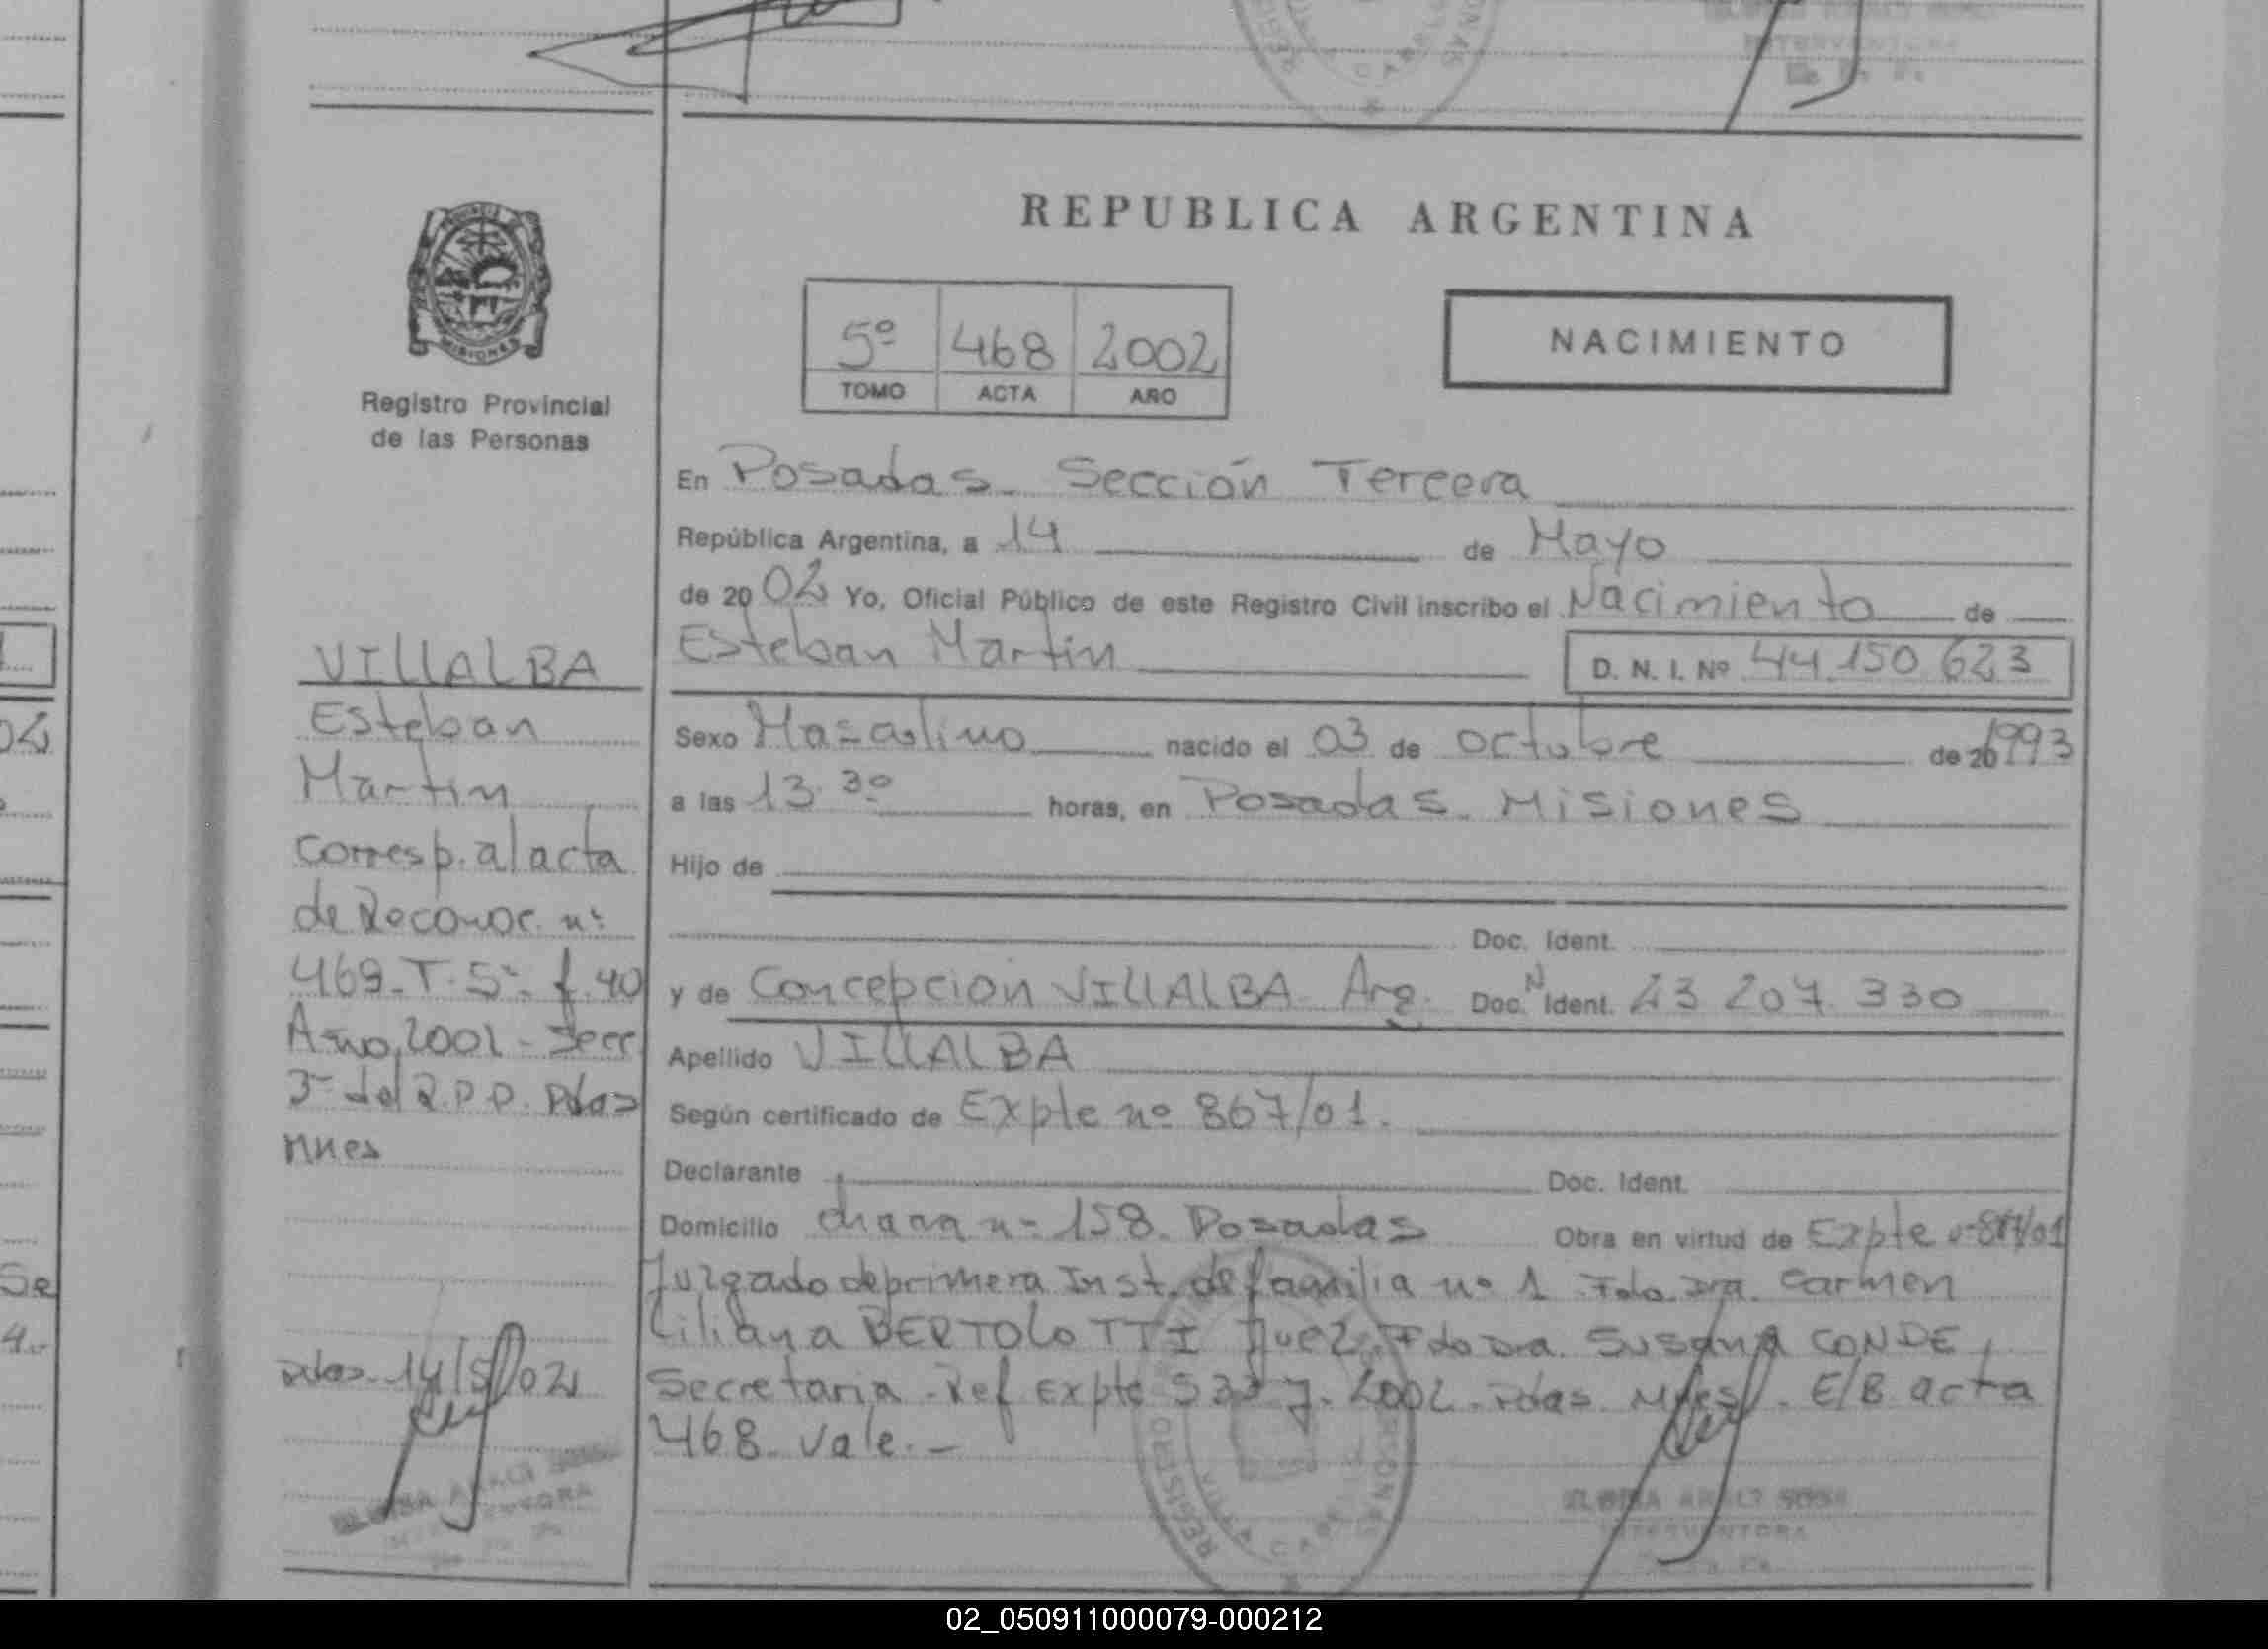 REPUBLICA ARGENTINA
MISIONES
Registro Provincial
de las Personas
5º 468 2002
TOMO ACTA AÑO
NACIMIENTO
VILLALBA
Esteban
Martin
corresp. al acta
de Reconoc. nº
469 - T. 5º - f. 40
Año 2002 - Secc
3º del R.P.P. Pdas
Mnes
Pdas 14/5/02
En Posadas - Sección Tercera
República Argentina, a 14 de Mayo
de 2002 Yo, Oficial Público de este Registro Civil inscribo el Nacimiento de
Esteban Martin D. N. I. Nº 44.150.623
Sexo Masculino nacido el 03 de octubre de 20 1993
a las 13.30 horas, en Posadas - Misiones
Hijo de
Doc. Ident.
y de Concepción VILLALBA - Arg. Doc. N Ident. 23 207. 330
Apellido VILLALBA
Según certificado de Expte nº 867/01.
Declarante Doc. Ident.
Domicilio chacra nº 158. Posadas Obra en virtud de Expte nº 867/01
Juzgado de primera Inst. de familia nº 1 Fdo. Dra. Carmen
Liliana BERTOLOTTI Juez. Fdo Dra. Susana CONDE,
Secretaria - Ref Expte 2002 - Pdas. Mnes. E/B acta
468 - vale. -
REGISTRO
02_050911000079-000212